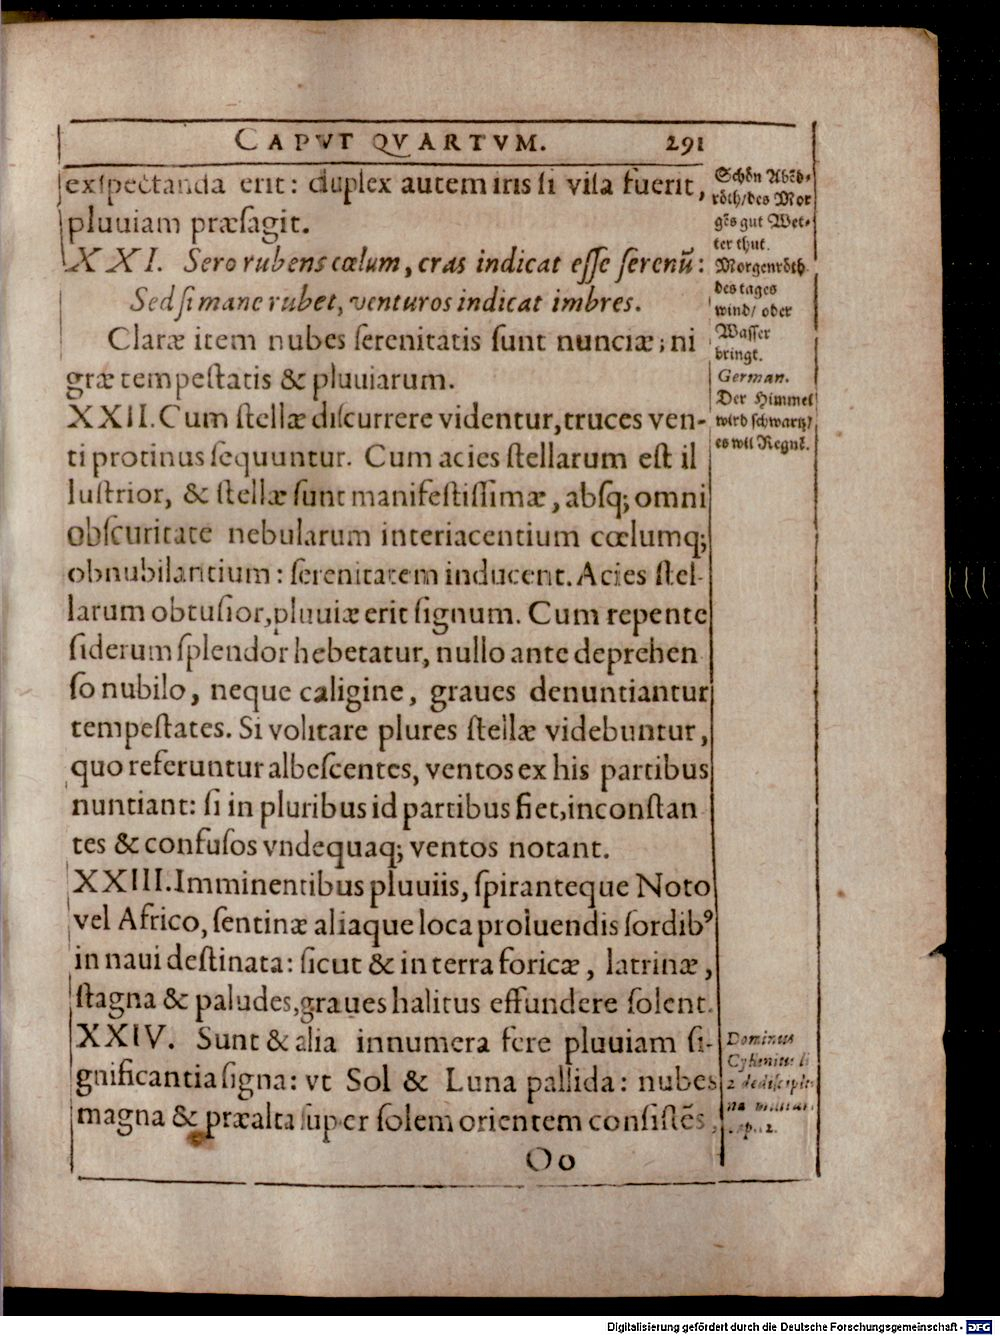 CAPVT QVARTVM. 291
exſpectanda erit: duplex autem iris ſi viſa fuerit,
pluuiam præſagit.
XXI. Sero rubens cœlum, cras indicat eſſe ſerenũ:
Sed ſi mane rubet, venturos indicat imbres.
Claræ item nubes ſerenitatis ſunt nunciæ; ni
græ tempeſtatis & pluuiarum.
XXII. Cum ſtellæ diſcurrere videntur, truces ven-
ti protinus ſequuntur. Cum acies ſtellarum eſt il
luſtrior, & ſtellæ ſunt manifeſtiſſimæ, abſq; omni
obſcuritate nebularum interiacentium cœlumq;
obnubilantium: ſerenitatem inducent. Acies ſtel-
larum obtuſior, pluuiæ erit ſignum. Cum repente
ſiderum ſplendor hebetatur, nullo ante deprehen
ſo nubilo, neque caligine, graues denuntiantur
tempeſtates. Si volitare plures ſtellæ videbuntur,
quo referuntur albeſcentes, ventos ex his partibus
nuntiant: ſi in pluribus id partibus fiet, inconſtan
tes & confuſos vndequaq; ventos notant.
XXIII. Imminentibus pluuiis, ſpiranteque Noto
vel Africo, ſentinæ aliaque loca proluendis ſordibꝰ
in naui deſtinata: ſicut & in terra foricæ, latrinæ,
ſtagna & paludes, graues halitus effundere ſolent.
XXIV. Sunt & alia innumera fere pluuiam ſi-
gnificantia ſigna: vt Sol & Luna pallida: nubes
magna & præalta ſuper ſolem orientem conſiſtẽs,
Oo
Schön Abēd-
röth/des Mor
gēs gut Wet-
ter thut.
Morgenröth
des tages
wind/ oder
Waſſer
bringt.
German.
Der Himmel
wird ſchwartz/
es wil Regnē.
Dominus
li
2 de diſcipli-
na militari
2.
Digitalisierung gefördert durch die Deutsche Forschungsgemeinschaft - DFG